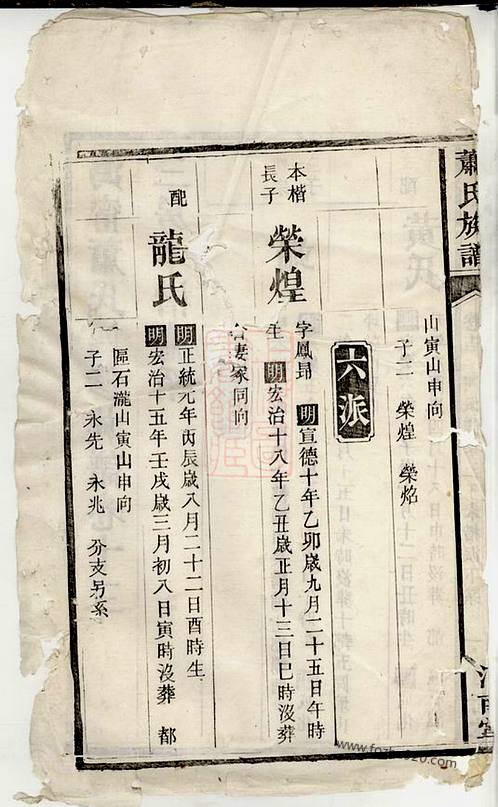 蕭氏族譜
山寅山申向
子二 榮煌 榮焰
六派
本楷長子 榮煌
字鳳昂 明宣德十年乙卯歲九月二十五日午時
生 明宏治十八年乙丑歲正月十三日巳時沒葬
合妻冢同向
配 龍氏
明正統元年丙辰歲八月二十二日酉時生
明宏治十五年壬戌歲三月初八日寅時沒葬 都
區石瀧山寅山申向
子二 永先 永兆 分支另系